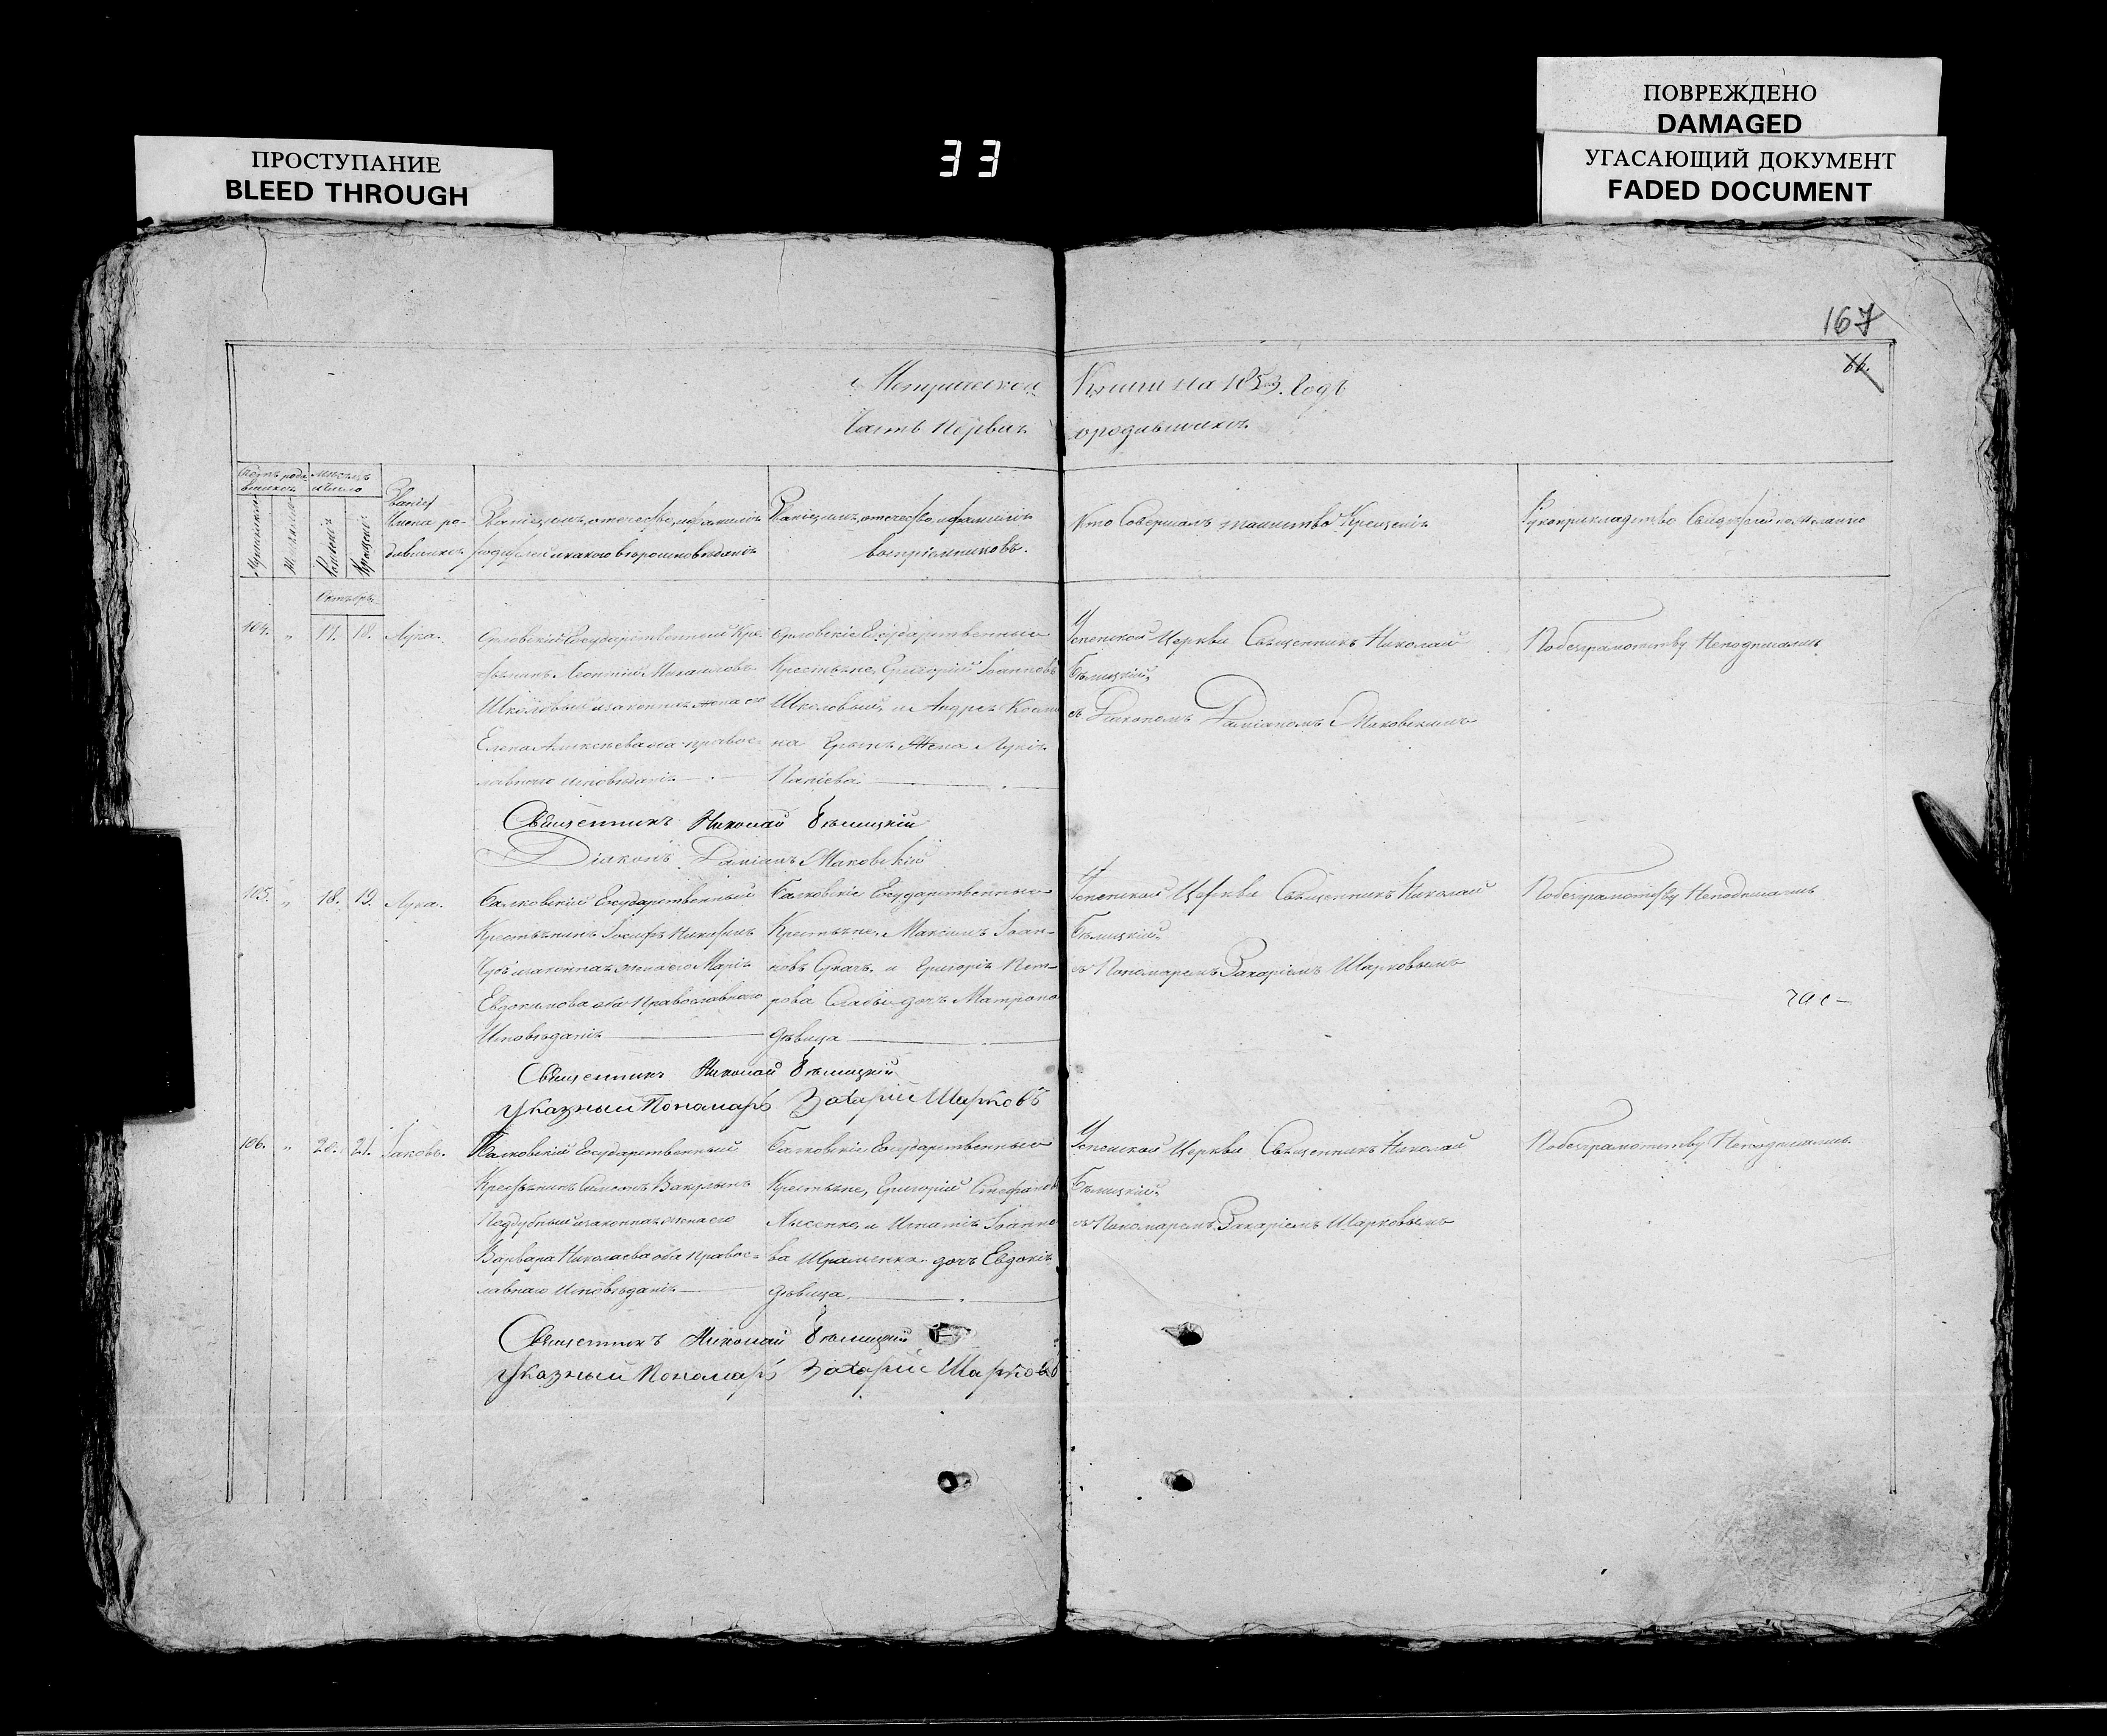 ПОВРЕЖДЕНО
DAMAGED
ПРОСТУПАНИЕ
BLEED THROUGH
33
УГАСАЮЩИЙ ДОКУМЕНТ
FADED DOCUMENT
167
66.
Метрической Книги на 1853. Годъ
Часть Первая ородившихся.
Званіе, имя, отечество, и фамилія
родителей и какого вѣроисповѣданія
Званіе, имя, отечество, и фамилія
воспріемниковъ.
Кто Совершалъ таинство Крещенія
Рукоприкладство Свидѣтелей по желанію
Октябрь
104. " 17. 18. Лука.
Орловскій Государственный Кре-
стьянинъ Леонтій Михаиловъ
Школовый и законная жена его
Елена Алексѣева оба правос-
лавнаго исповѣданія
Орловскіе Государственные
Крестьяне, Григорій Іоанновъ
Школовый, и Андрея
на жена Лукія
Успенской Церкви Священникъ Николай
Бѣлицкій,
съ Діакономъ Даміаномъ Маковскимъ
Побезграмотству Неподписались
Священникъ Николай Бѣлицкій
Діаконъ Даміанъ Маковскій
105. " 18. 19. Лука.
Балковскій Государственный
Крестьянинъ Іосифъ
и законная жена его Марія
Евдокимова оба Православнаго
Исповѣданія
Балковскіе Государственные
Крестьяне, Максимъ Іоан-
новъ и Григорія Пет-
рова дочь Матрона
дѣвица
Успенской Церкви Священникъ Николай
Бѣлицкій,
съ Пономаремъ Захаріемъ Шарковымъ
Побезграмотству Неподписались
Священникъ Николай Бѣлицкій
Указный Пономарь Захарій Шарковъ
106. " 20. 21. Іаковъ.
Балковскій Государственный
Крестьянинъ Симеонъ
Поддубный и законная жена его
Варвара Николаева оба Правос-
лавнаго Исповѣданія
Балковскіе Государственные
Крестьяне, Григорій Стефановъ
Лысенко, и Игнатія Іоанно-
ва дочь Евдокія
дѣвица
Успенской Церкви Священникъ Николай
Бѣлицкій,
съ Пономаремъ Захаріемъ Шарковымъ
Побезграмотству Неподписались.
Священникъ Николай Бѣлицкій
Указный Пономарь Захарій Шарковъ